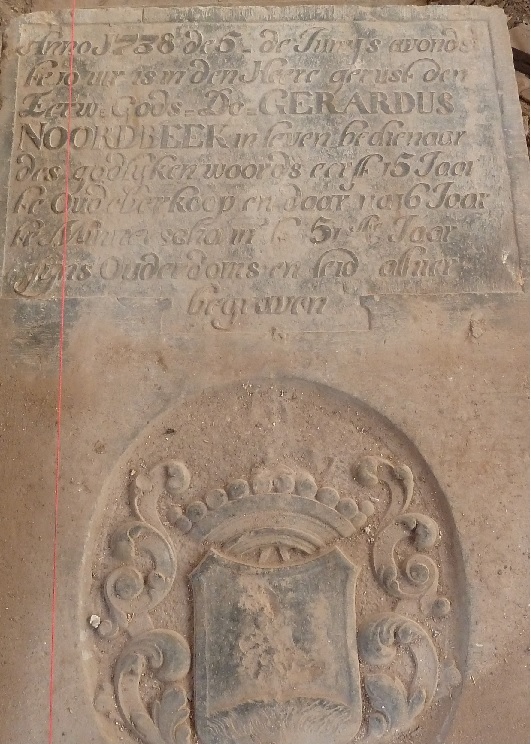 Anno 1738 de 6 de Juny's avonds
te 10 uur is in den Heere gerust den
Eerw. Gods. Do. GERARDUS
NOORDBEEK in leven bedienaar
des godlyken woords eerst 15 Jaar
te Oudeberkoop en daar na 16 Jaar
te in 't 51ste Jaar
zyns Ouderdoms en leid alhier
begraven